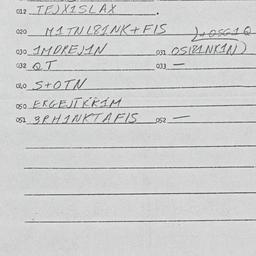 012 TEJX1SLAX
020 M1TNL81NK+FIS
030 1MDREJ1N 031 OSI81NK1N)
032 QT 033 —
040 S+OTN
050 EKGEJTKR1M
051 3RH1NKTAFIS 052 —